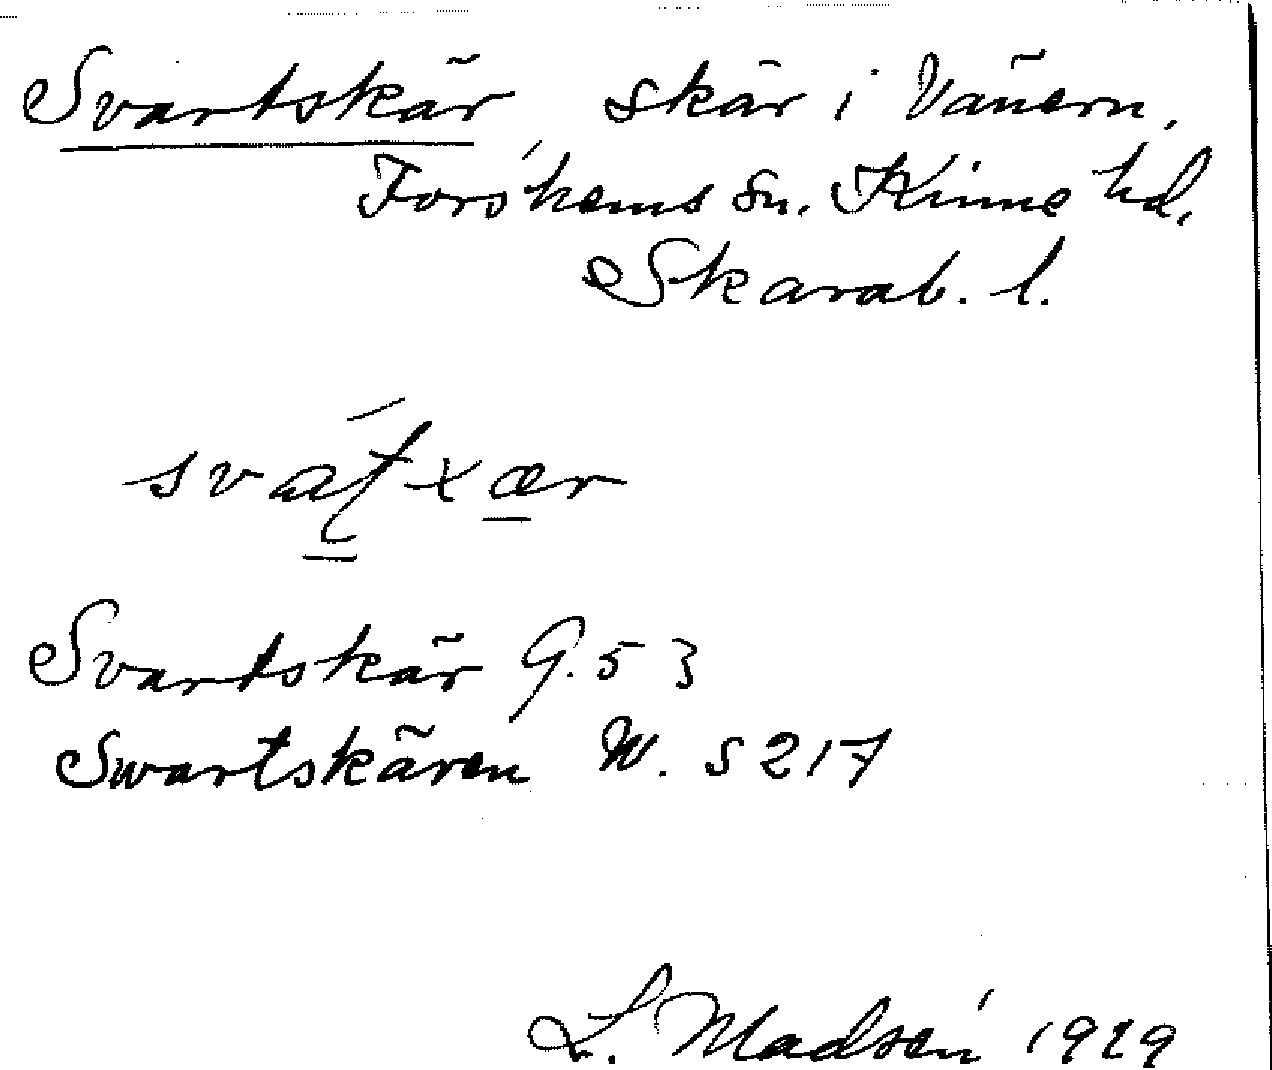 Svartskär, skär i Vänern,
Forshems sn. Kinne hd,
Skarab. l.
Svartskär G. 53
Swartskären W. S 217
L. Madsén 1929